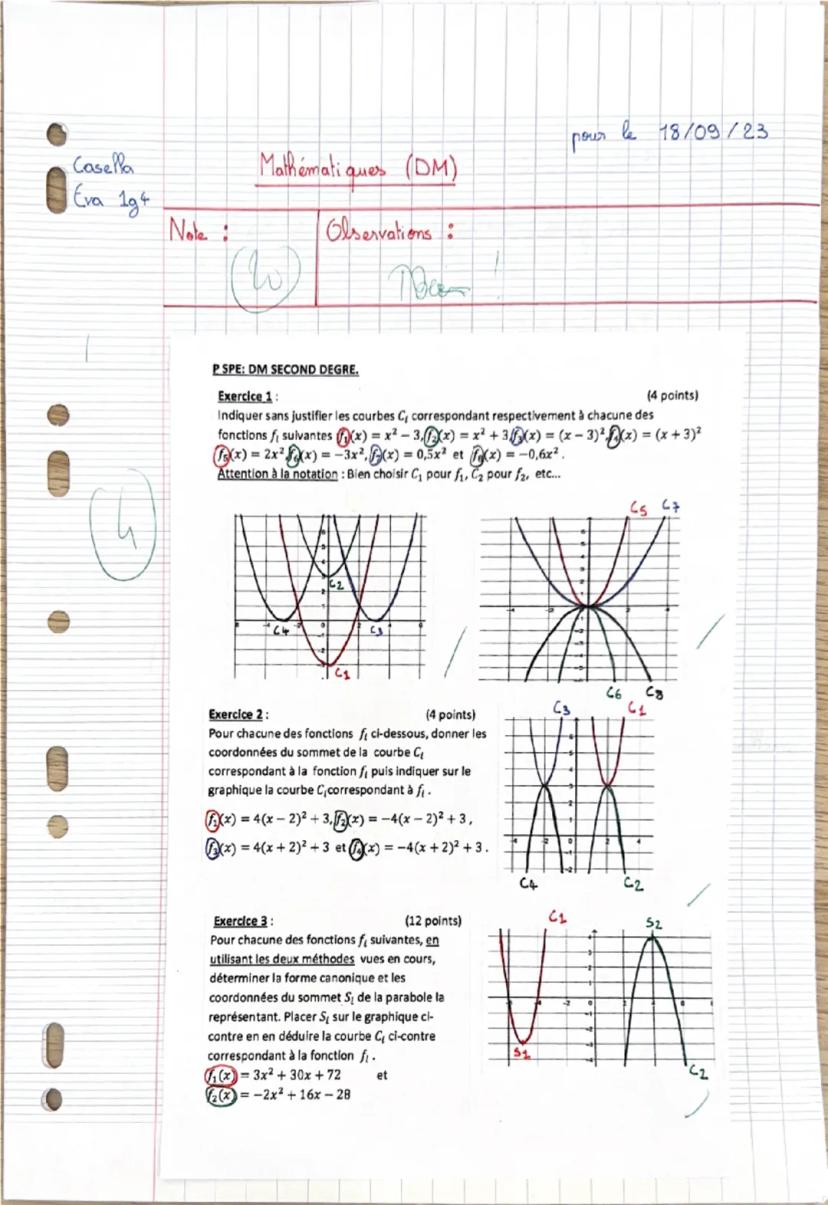 pour le 18/09/23
Casella
Eva 1g4
Mathématiques (DM)
Note :
Observations :
20
P SPE: DM SECOND DEGRE.
Exercice 1 : (4 points)
Indiquer sans justifier les courbes Cᵢ correspondant respectivement à chacune des
fonctions fᵢ suivantes f₁(x) = x² − 3, f₂(x) = x² + 3, f₃(x) = (x − 3)², f₄(x) = (x + 3)²
f₅(x) = 2x², f₆(x) = −3x², f₇(x) = 0,5x² et f₈(x) = −0,6x².
Attention à la notation : Bien choisir C₁ pour f₁, C₂ pour f₂, etc...
4
C5 C7
C2
C4 C3
C1
C6 C8
Exercice 2 : (4 points)
Pour chacune des fonctions fᵢ ci-dessous, donner les
coordonnées du sommet de la courbe Cᵢ
correspondant à la fonction fᵢ puis indiquer sur le
graphique la courbe Cᵢcorrespondant à fᵢ .
f₁(x) = 4(x − 2)² + 3, f₂(x) = −4(x − 2)² + 3 ,
f₃(x) = 4(x + 2)² + 3 et f₄(x) = −4(x + 2)² + 3 .
C3 C1
C4 C2
Exercice 3 : (12 points)
Pour chacune des fonctions fᵢ suivantes, en
utilisant les deux méthodes vues en cours,
déterminer la forme canonique et les
coordonnées du sommet Sᵢ de la parabole la
représentant. Placer Sᵢ sur le graphique ci-
contre en en déduire la courbe Cᵢ ci-contre
correspondant à la fonction fᵢ .
f₁(x) = 3x² + 30x + 72 et
f₂(x) = −2x² + 16x − 28
C1 S2
S1
C2